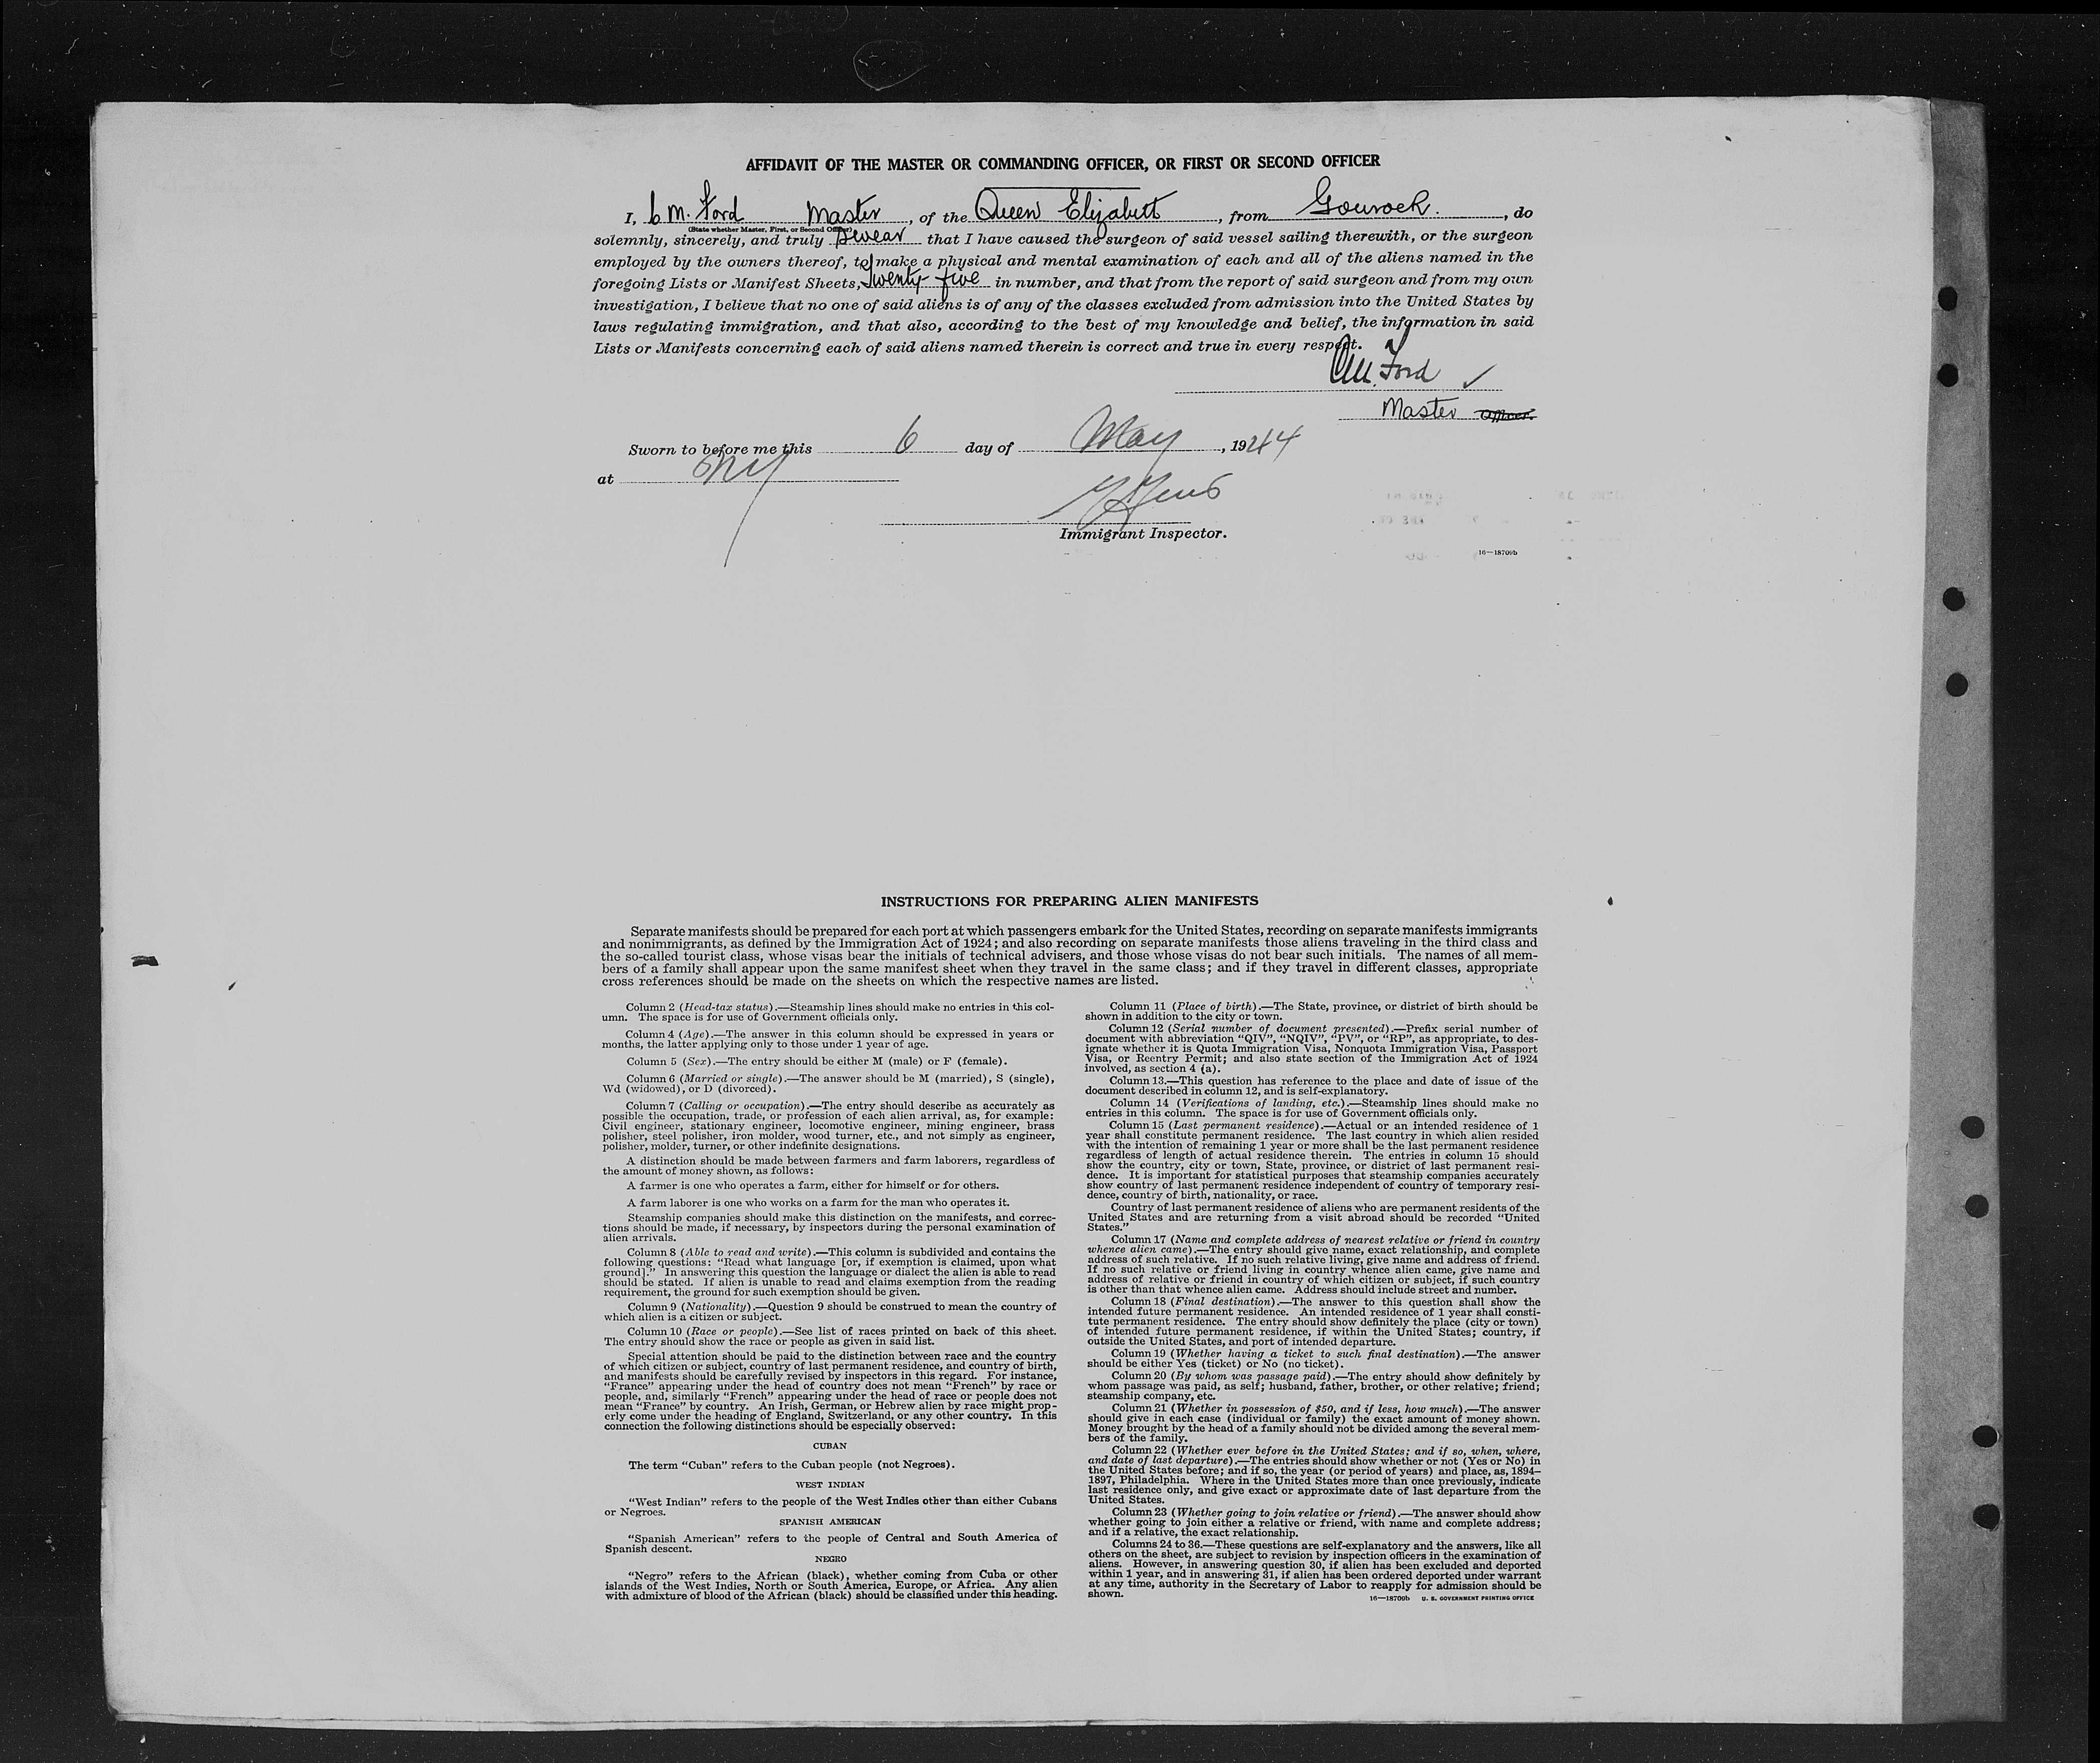 AFFIDAVIT OF THE MASTER OR COMMANDING OFFICER, OR FIRST OR SECOND OFFICER
I, C. M. Ford Master, of the Queen Elizabeth, from Gourock., do
(State whether Master, First, or Second Officer)
solemnly, sincerely, and truly swear that I have caused the surgeon of said vessel sailing therewith, or the surgeon
employed by the owners thereof, to make a physical and mental examination of each and all of the aliens named in the
foregoing Lists or Manifest Sheets, Twenty five in number, and that from the report of said surgeon and from my own
investigation, I believe that no one of said aliens is of any of the classes excluded from admission into the United States by
laws regulating immigration, and that also, according to the best of my knowledge and belief, the information in said
Lists or Manifests concerning each of said aliens named therein is correct and true in every respect.
C.M. Ford ✓
Master Officer.
Sworn to before me this 6 day of May, 1944
at NY
Immigrant Inspector.
16—18709b
INSTRUCTIONS FOR PREPARING ALIEN MANIFESTS
Separate manifests should be prepared for each port at which passengers embark for the United States, recording on separate manifests immigrants
and nonimmigrants, as defined by the Immigration Act of 1924; and also recording on separate manifests those aliens traveling in the third class and
the so-called tourist class, whose visas bear the initials of technical advisers, and those whose visas do not bear such initials. The names of all mem-
bers of a family shall appear upon the same manifest sheet when they travel in the same class; and if they travel in different classes, appropriate
cross references should be made on the sheets on which the respective names are listed.
Column 2 (Head-tax status).—Steamship lines should make no entries in this col-
umn. The space is for use of Government officials only.
Column 4 (Age).—The answer in this column should be expressed in years or
months, the latter applying only to those under 1 year of age.
Column 5 (Sex).—The entry should be either M (male) or F (female).
Column 6 (Married or single).—The answer should be M (married), S (single),
Wd (widowed), or D (divorced).
Column 7 (Calling or occupation).—The entry should describe as accurately as
possible the occupation, trade, or profession of each alien arrival, as, for example:
Civil engineer, stationary engineer, locomotive engineer, mining engineer, brass
polisher, steel polisher, iron molder, wood turner, etc., and not simply as engineer,
polisher, molder, turner, or other indefinite designations.
A distinction should be made between farmers and farm laborers, regardless of
the amount of money shown, as follows:
A farmer is one who operates a farm, either for himself or for others.
A farm laborer is one who works on a farm for the man who operates it.
Steamship companies should make this distinction on the manifests, and correc-
tions should be made, if necessary, by inspectors during the personal examination of
alien arrivals.
Column 8 (Able to read and write).—This column is subdivided and contains the
following questions: “Read what language [or, if exemption is claimed, upon what
ground].” In answering this question the language or dialect the alien is able to read
should be stated. If alien is unable to read and claims exemption from the reading
requirement, the ground for such exemption should be given.
Column 9 (Nationality).—Question 9 should be construed to mean the country of
which alien is a citizen or subject.
Column 10 (Race or people).—See list of races printed on back of this sheet.
The entry should show the race or people as given in said list.
Special attention should be paid to the distinction between race and the country
of which citizen or subject, country of last permanent residence, and country of birth,
and manifests should be carefully revised by inspectors in this regard. For instance,
“France” appearing under the head of country does not mean “French” by race or
people, and, similarly “French” appearing under the head of race or people does not
mean “France” by country. An Irish, German, or Hebrew alien by race might prop-
erly come under the heading of England, Switzerland, or any other country. In this
connection the following distinctions should be especially observed:
CUBAN
The term “Cuban” refers to the Cuban people (not Negroes).
WEST INDIAN
“West Indian” refers to the people of the West Indies other than either Cubans
or Negroes.
SPANISH AMERICAN
“Spanish American” refers to the people of Central and South America of
Spanish descent.
NEGRO
“Negro” refers to the African (black), whether coming from Cuba or other
islands of the West Indies, North or South America, Europe, or Africa. Any alien
with admixture of blood of the African (black) should be classified under this heading.
Column 11 (Place of birth).—The State, province, or district of birth should be
shown in addition to the city or town.
Column 12 (Serial number of document presented).—Prefix serial number of
document with abbreviation “QIV”, “NQIV”, “PV”, or “RP”, as appropriate, to des-
ignate whether it is Quota Immigration Visa, Nonquota Immigration Visa, Passport
Visa, or Reentry Permit; and also state section of the Immigration Act of 1924
involved, as section 4 (a).
Column 13.—This question has reference to the place and date of issue of the
document described in column 12, and is self-explanatory.
Column 14 (Verifications of landing, etc.).—Steamship lines should make no
entries in this column. The space is for use of Government officials only.
Column 15 (Last permanent residence).—Actual or an intended residence of 1
year shall constitute permanent residence. The last country in which alien resided
with the intention of remaining 1 year or more shall be the last permanent residence
regardless of length of actual residence therein. The entries in column 15 should
show the country, city or town, State, province, or district of last permanent resi-
dence. It is important for statistical purposes that steamship companies accurately
show country of last permanent residence independent of country of temporary resi-
dence, country of birth, nationality, or race.
Country of last permanent residence of aliens who are permanent residents of the
United States and are returning from a visit abroad should be recorded “United
States.”
Column 17 (Name and complete address of nearest relative or friend in country
whence alien came).—The entry should give name, exact relationship, and complete
address of such relative. If no such relative living, give name and address of friend.
If no such relative or friend living in country whence alien came, give name and
address of relative or friend in country of which citizen or subject, if such country
is other than that whence alien came. Address should include street and number.
Column 18 (Final destination).—The answer to this question shall show the
intended future permanent residence. An intended residence of 1 year shall consti-
tute permanent residence. The entry should show definitely the place (city or town)
of intended future permanent residence, if within the United States; country, if
outside the United States, and port of intended departure.
Column 19 (Whether having a ticket to such final destination).—The answer
should be either Yes (ticket) or No (no ticket).
Column 20 (By whom was passage paid).—The entry should show definitely by
whom passage was paid, as self; husband, father, brother, or other relative; friend;
steamship company, etc.
Column 21 (Whether in possession of $50, and if less, how much).—The answer
should give in each case (individual or family) the exact amount of money shown.
Money brought by the head of a family should not be divided among the several mem-
bers of the family.
Column 22 (Whether ever before in the United States; and if so, when, where,
and date of last departure).—The entries should show whether or not (Yes or No) in
the United States before; and if so, the year (or period of years) and place, as, 1894–
1897, Philadelphia. Where in the United States more than once previously, indicate
last residence only, and give exact or approximate date of last departure from the
United States.
Column 23 (Whether going to join relative or friend).—The answer should show
whether going to join either a relative or friend, with name and complete address;
and if a relative, the exact relationship.
Columns 24 to 36.—These questions are self-explanatory and the answers, like all
others on the sheet, are subject to revision by inspection officers in the examination of
aliens. However, in answering question 30, if alien has been excluded and deported
within 1 year, and in answering 31, if alien has been ordered deported under warrant
at any time, authority in the Secretary of Labor to reapply for admission should be
shown.
16—18709b U. S. GOVERNMENT PRINTING OFFICE